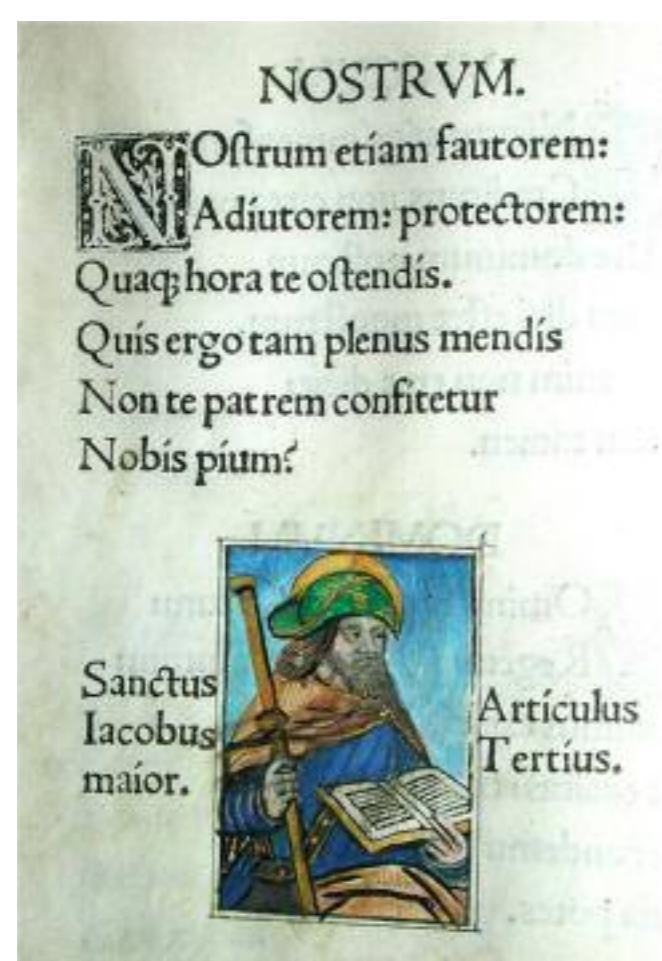 NOSTRVM.
NOſtrum etiam fautorem:
Adiutorem: protectorem:
Quaq; hora te oſtendis.
Quis ergo tam plenus mendis
Non te patrem confitetur
Nobis pium?
Sanctus
Iacobus
maior.
Articulus
Tertius.